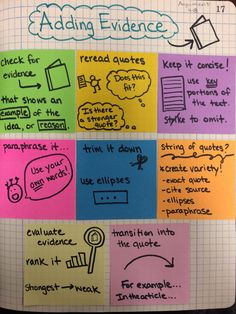 Argument
4.8
17
Adding Evidence
check for
evidence...
that shows an
example of the
idea, or reason.
reread quotes
Does this
fit?
Is there
a stronger
quote?
Keep it concise!
use key
portions of
the text.
strike to omit.
paraphrase it...
Use your
own words!
trim it down
use ellipses
....
string of quotes?
*create variety!
-exact quote
-cite source
-ellipses
-paraphrase
evaluate
evidence
rank it
strongest → weak
transition into
the quote
For example...
In the article...